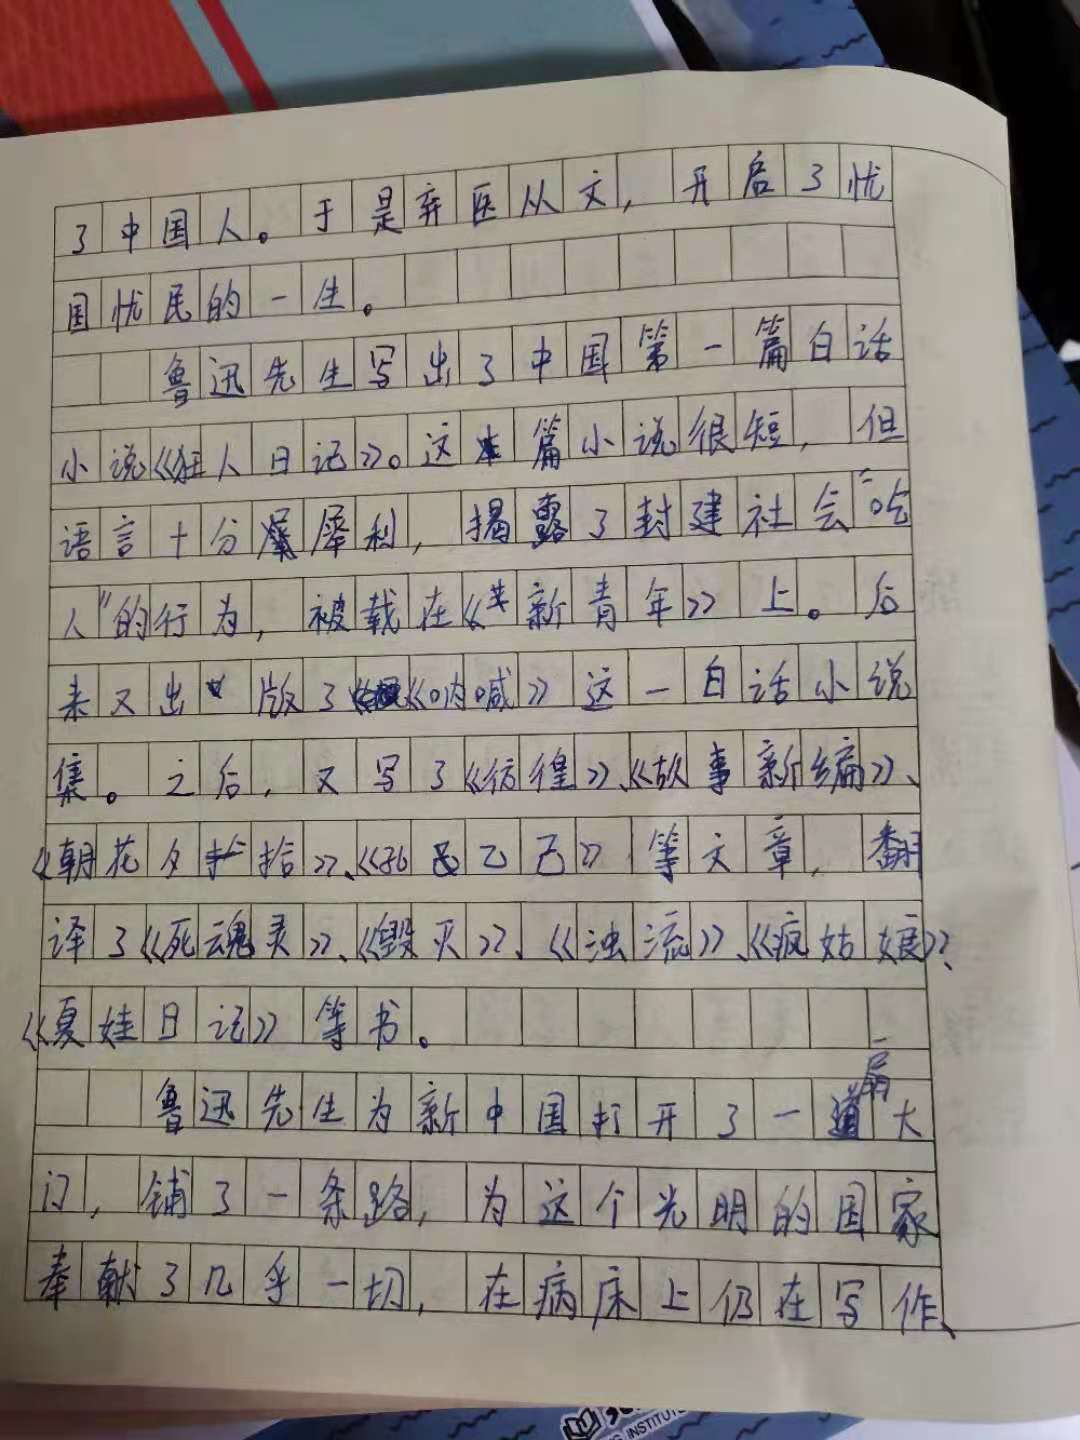 了中国人。于是弃医从文，开启了忧
国忧民的一生。
鲁迅先生写出了中国第一篇白话
小说《狂人日记》。这篇小说很短，但
语言十分犀利，揭露了封建社会“吃
人”的行为，被载在《新青年》上。后
来又出版了《呐喊》这一白话小说
集。之后，又写了《彷徨》、《故事新编》、
《朝花夕拾》、《孔乙己》等文章，翻
译了《死魂灵》、《毁灭》、《浊流》、《疯姑娘》、
《夏娃日记》等书。
鲁迅先生为新中国打开了一扇大
门，铺了一条路，为这个光明的国家
奉献了几乎一切，在病床上仍在写作、
INSTITUTE